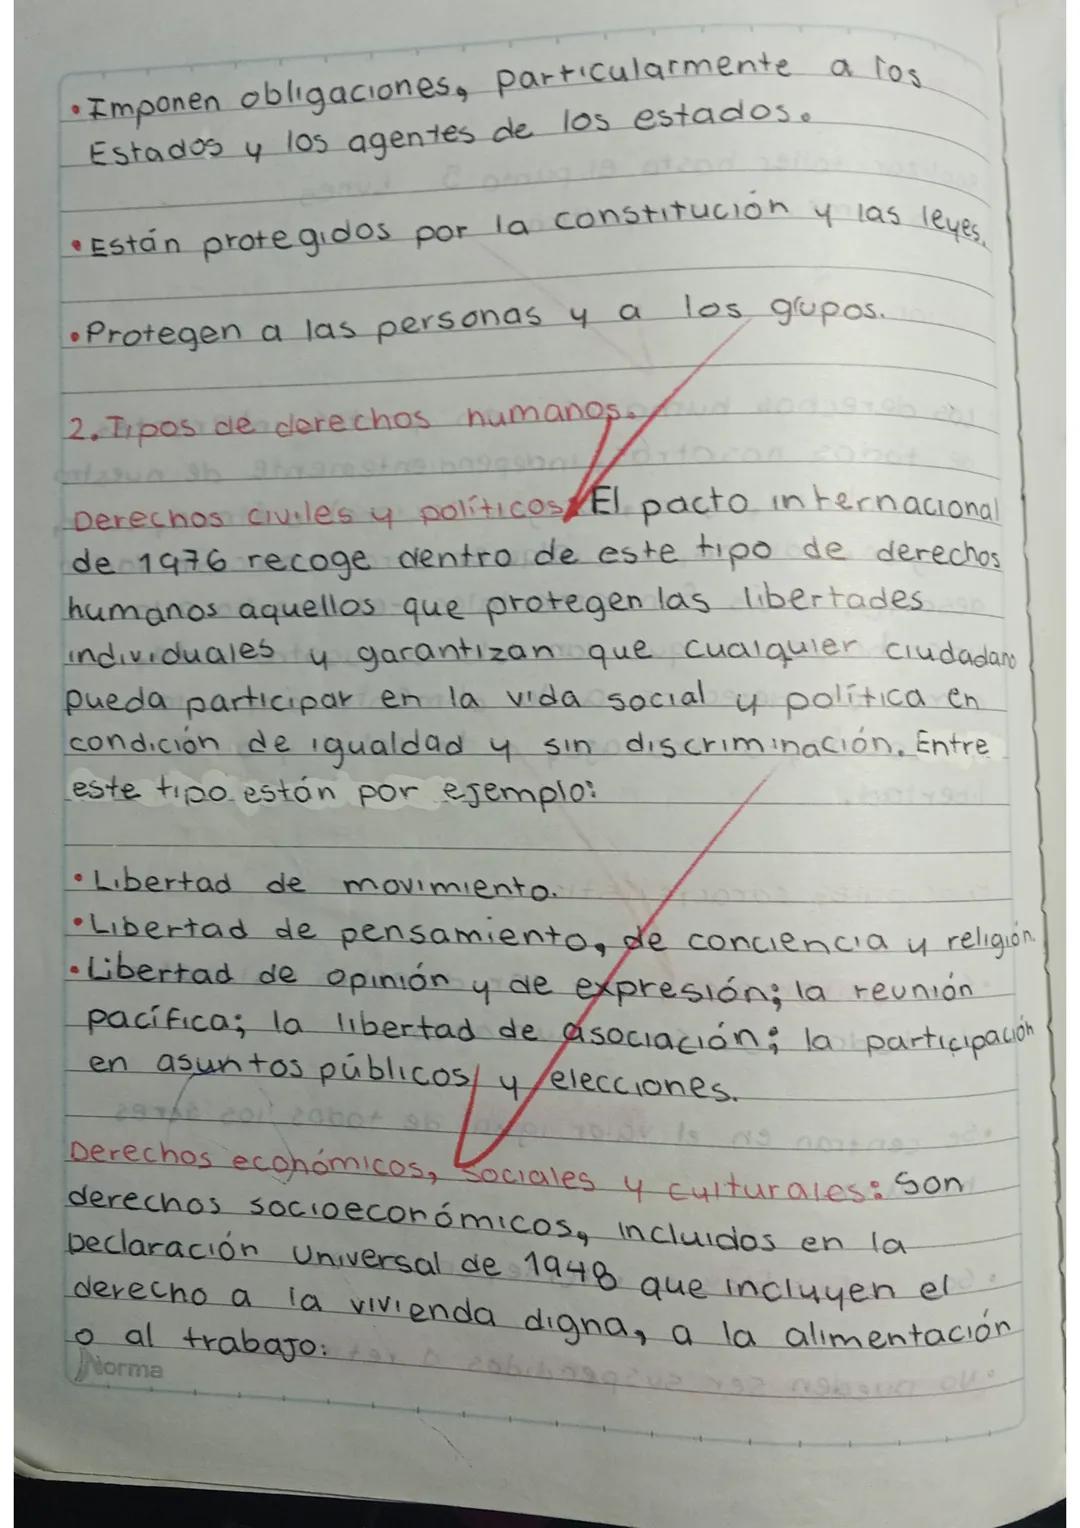 • Imponen obligaciones, particularmente a los
Estados y los agentes de los estados.
• Están protegidos por la constitución y las leyes.
• Protegen a las personas y a los grupos.
2. Tipos de derechos humanos.
Derechos civiles y políticos: El pacto internacional
de 1976 recoge dentro de este tipo de derechos
humanos aquellos que protegen las libertades
individuales y garantizan que cualquier ciudadano
pueda participar en la vida social y política en
condición de igualdad y sin discriminación. Entre
este tipo están por ejemplo:
• Libertad de movimiento.
• Libertad de pensamiento, de conciencia y religión.
• Libertad de opinión y de expresión; la reunión
pacífica; la libertad de asociación; la participación
en asuntos públicos y elecciones.
Derechos económicos, sociales y culturales: Son
derechos socioeconómicos, incluidos en la
Declaración Universal de 1948 que incluyen el
derecho a la vivienda digna, a la alimentación
o al trabajo.
Norma